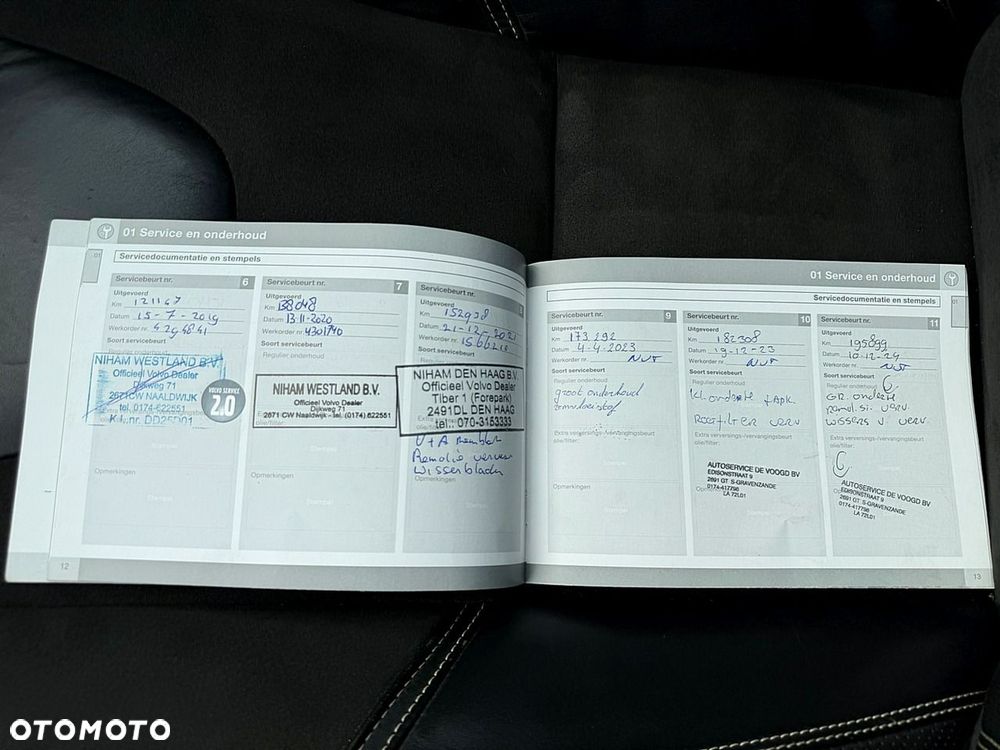 01 Service en onderhoud
Servicedocumentatie en stempels
01
Servicebeurt nr. 6
Uitgevoerd
Km 121167
Datum 15-7-2019
Werkorder nr.
Soort servicebeurt
NIHAM WESTLAND B.V.
Officieel Volvo Dealer
Dijkweg 71
2671 CW NAALDWIJK
tel. 0174-622551
K.I.nr. DD25D01
VOLVO SERVICE
2.0
olie/filter:
Opmerkingen
Stempel
Servicebeurt nr. 7
Uitgevoerd
Km 138048
Datum 13-11-2020
Werkorder nr. 4301740
Soort servicebeurt
Regulier onderhoud
NIHAM WESTLAND B.V.
Officieel Volvo Dealer
Dijkweg 71
2671 CW Naaldwijk - tel. (0174) 622551
olie/filter:
Opmerkingen
Stempel
Servicebeurt nr. 8
Uitgevoerd
Km 152908
Datum 21-12-2021
Werkorder nr.
Soort servicebeurt
NIHAM DEN HAAG B.V.
Officieel Volvo Dealer
Tiber 1 (Forepark)
2491DL DEN HAAG
tel.: 070-3153333
V+A Remblok
Remolie verver
Wisserbladen
Opmerkingen
12
01 Service en onderhoud
Servicedocumentatie en stempels
01
Servicebeurt nr. 9
Uitgevoerd
Km 173.292
Datum 4-4-2023
Werkorder nr. NVT
Soort servicebeurt
Regulier onderhoud
groot onderhoud
Extra verversings-/vervangingsbeurt
olie/filter:
Opmerkingen
Stempel
Servicebeurt nr. 10
Uitgevoerd
Km 182308
Datum 19-12-23
Werkorder nr. NVT
Soort servicebeurt
Regulier onderhoud
+ Apk
verv
Extra verversings-/vervangingsbeurt
olie/filter:
AUTOSERVICE DE VOOGD BV
EDISONSTRAAT 9
2691 GT S-GRAVENZANDE
0174-417798
LA 72L01
Opmerkingen
Stempel
Servicebeurt nr. 11
Uitgevoerd
Km 195899
Datum 10-12-24
Werkorder nr. NVT
Soort servicebeurt
Regulier onderhoud
wissers v verv.
Extra verversings-/vervangingsbeurt
olie/filter:
Opmerkingen
AUTOSERVICE DE VOOGD BV
EDISONSTRAAT 9
2691 GT S-GRAVENZANDE
0174-417798
LA 72L01
13
OTOMOTO